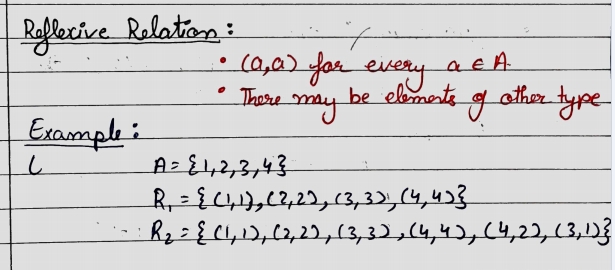 Reflexive Relation :
• (a,a) for every a ∈ A
• There may be elements of other type
Example :
(
A = {1,2,3,4}
R₁ = {(1,1),(2,2),(3,3),(4,4)}
R₂ = {(1,1),(2,2),(3,3),(4,4),(4,2),(3,1)}